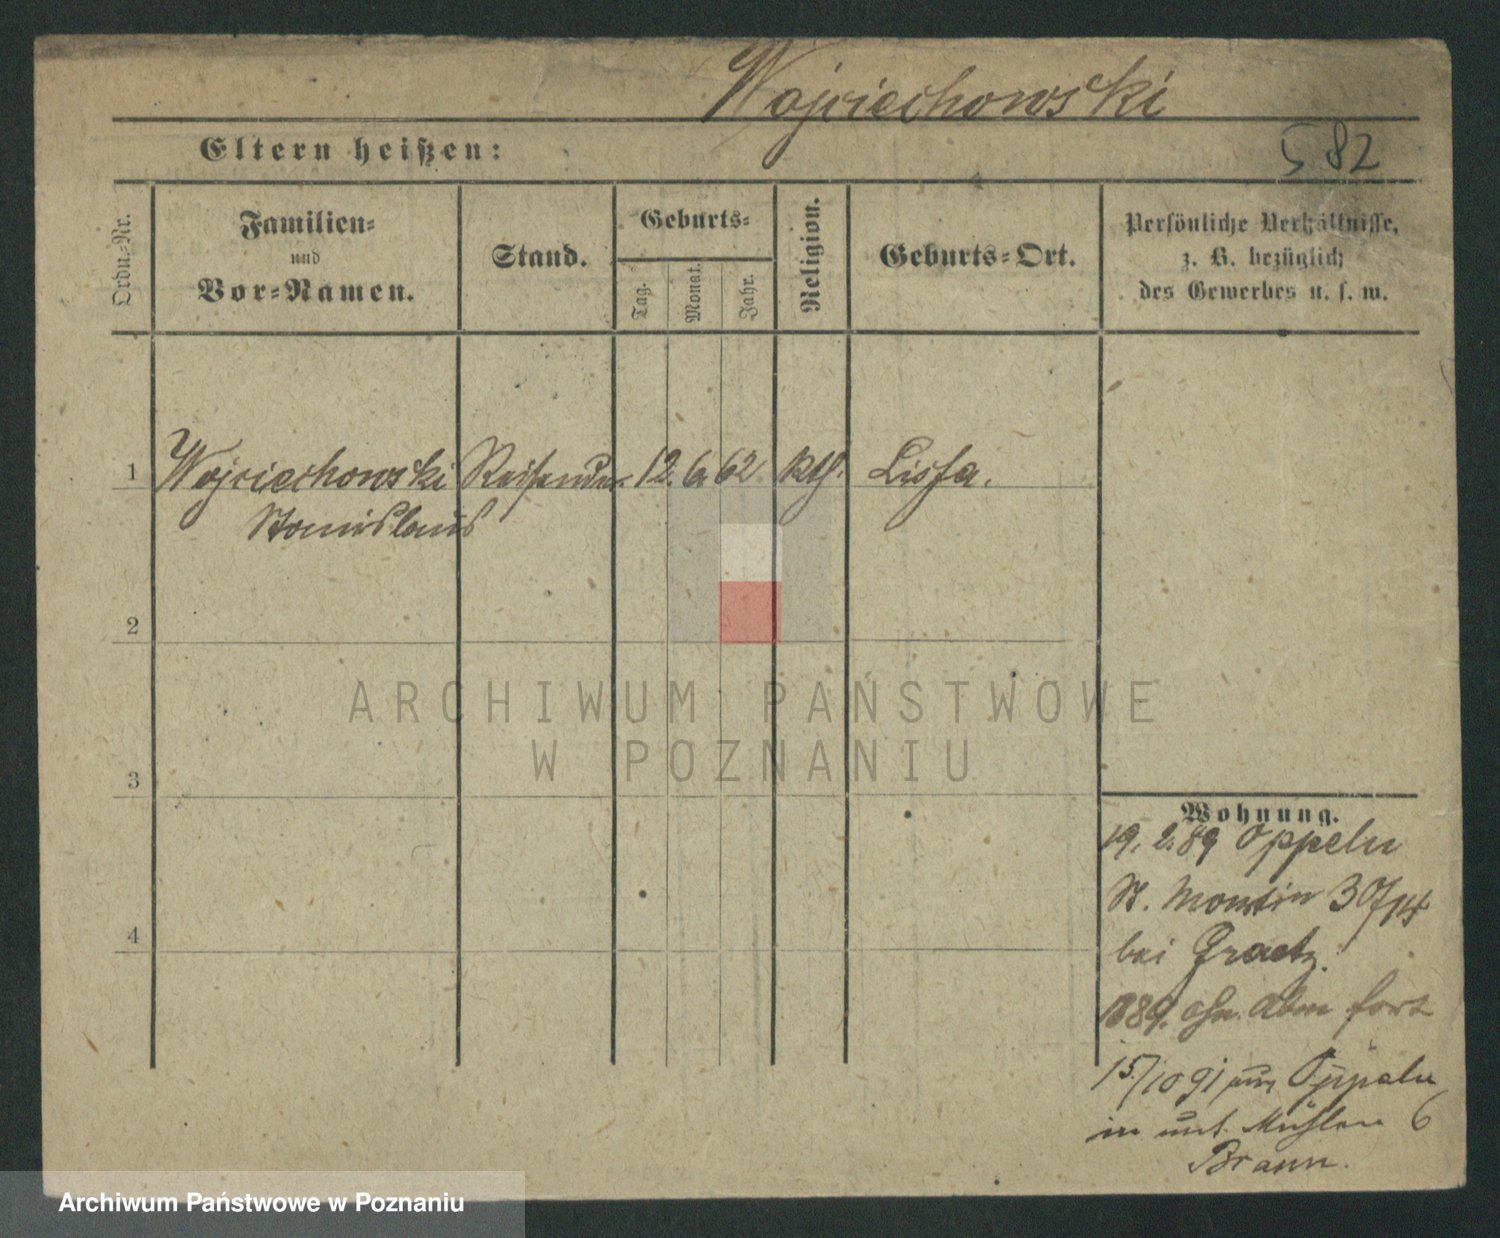 Wojciechowski
Eltern heißen:
582
Ordn.-Nr.
Familien-
und
Vor-Namen.
Stand.
Geburts-
Tag.
Monat.
Jahr.
Religion.
Geburts-Ort.
Persönliche Verhältnisse,
z. B. bezüglich
des Gewerbes u. s. w.
1 Wojciechowski Reisender 12. 6. 62. kth. Lissa.
Stanislaus
2
ARCHIWUM PAŃSTWOWE
W POZNANIU
3
Wohnung.
19. 2. 89 Oppeln
St. Martin 30/14
bei Graetz.
4
1889. ohn. Abm fort
15/10 91 aus Oppeln
in unt. Mühlen 6
Braun.
Archiwum Państwowe w Poznaniu